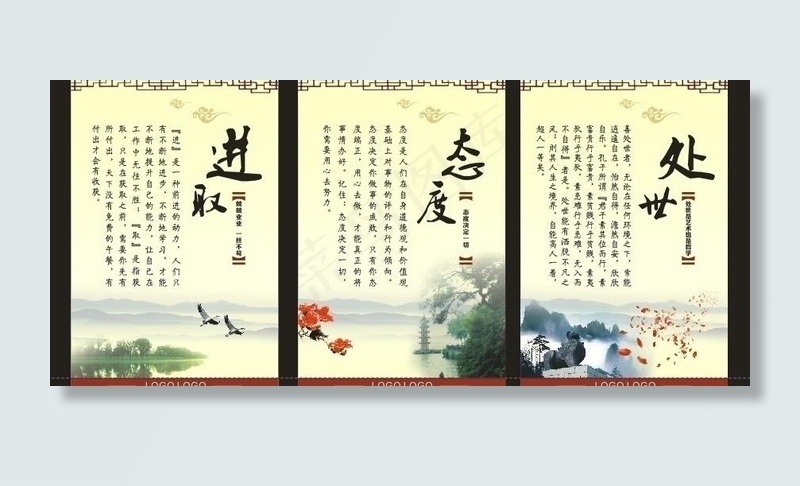 进取
兢兢业业 一丝不苟
『进』是一种前进的动力，人们只
有不断地进步，不断地学习，才能
不断地提升自己的能力，让自己在
工作中无往不胜：『取』是指获
取，只是在获取之前，需要你先有
所付出，天下没有免费的午餐，有
付出才会有收获。
LOGO LOGO
态度
态度决定一切
态度是人们在自身道德观和价值观
基础上对事物的评价和行为倾向。
态度决定你做事的成败，只有你态
度端正，用心去做，才能真正的将
事情办好。记住，态度决定一切，
你需要用心去努力。
LOGO LOGO
处世
处世是艺术也是哲学
喜处世者，无论在任何环境之下，常能
逍遥自在，怡然自得，澹然自安，欣欣
自乐。孔子所谓『君子素其位而行，素
富贵行乎富贵，素贫贱行乎贫贱，素夷
狄行乎夷狄，素患难行乎患难，无入而
不自得』者是。处世能有洒脱不凡之
风；则其人生之境界，自能高人一看，
超人一等矣。
LOGO LOGO